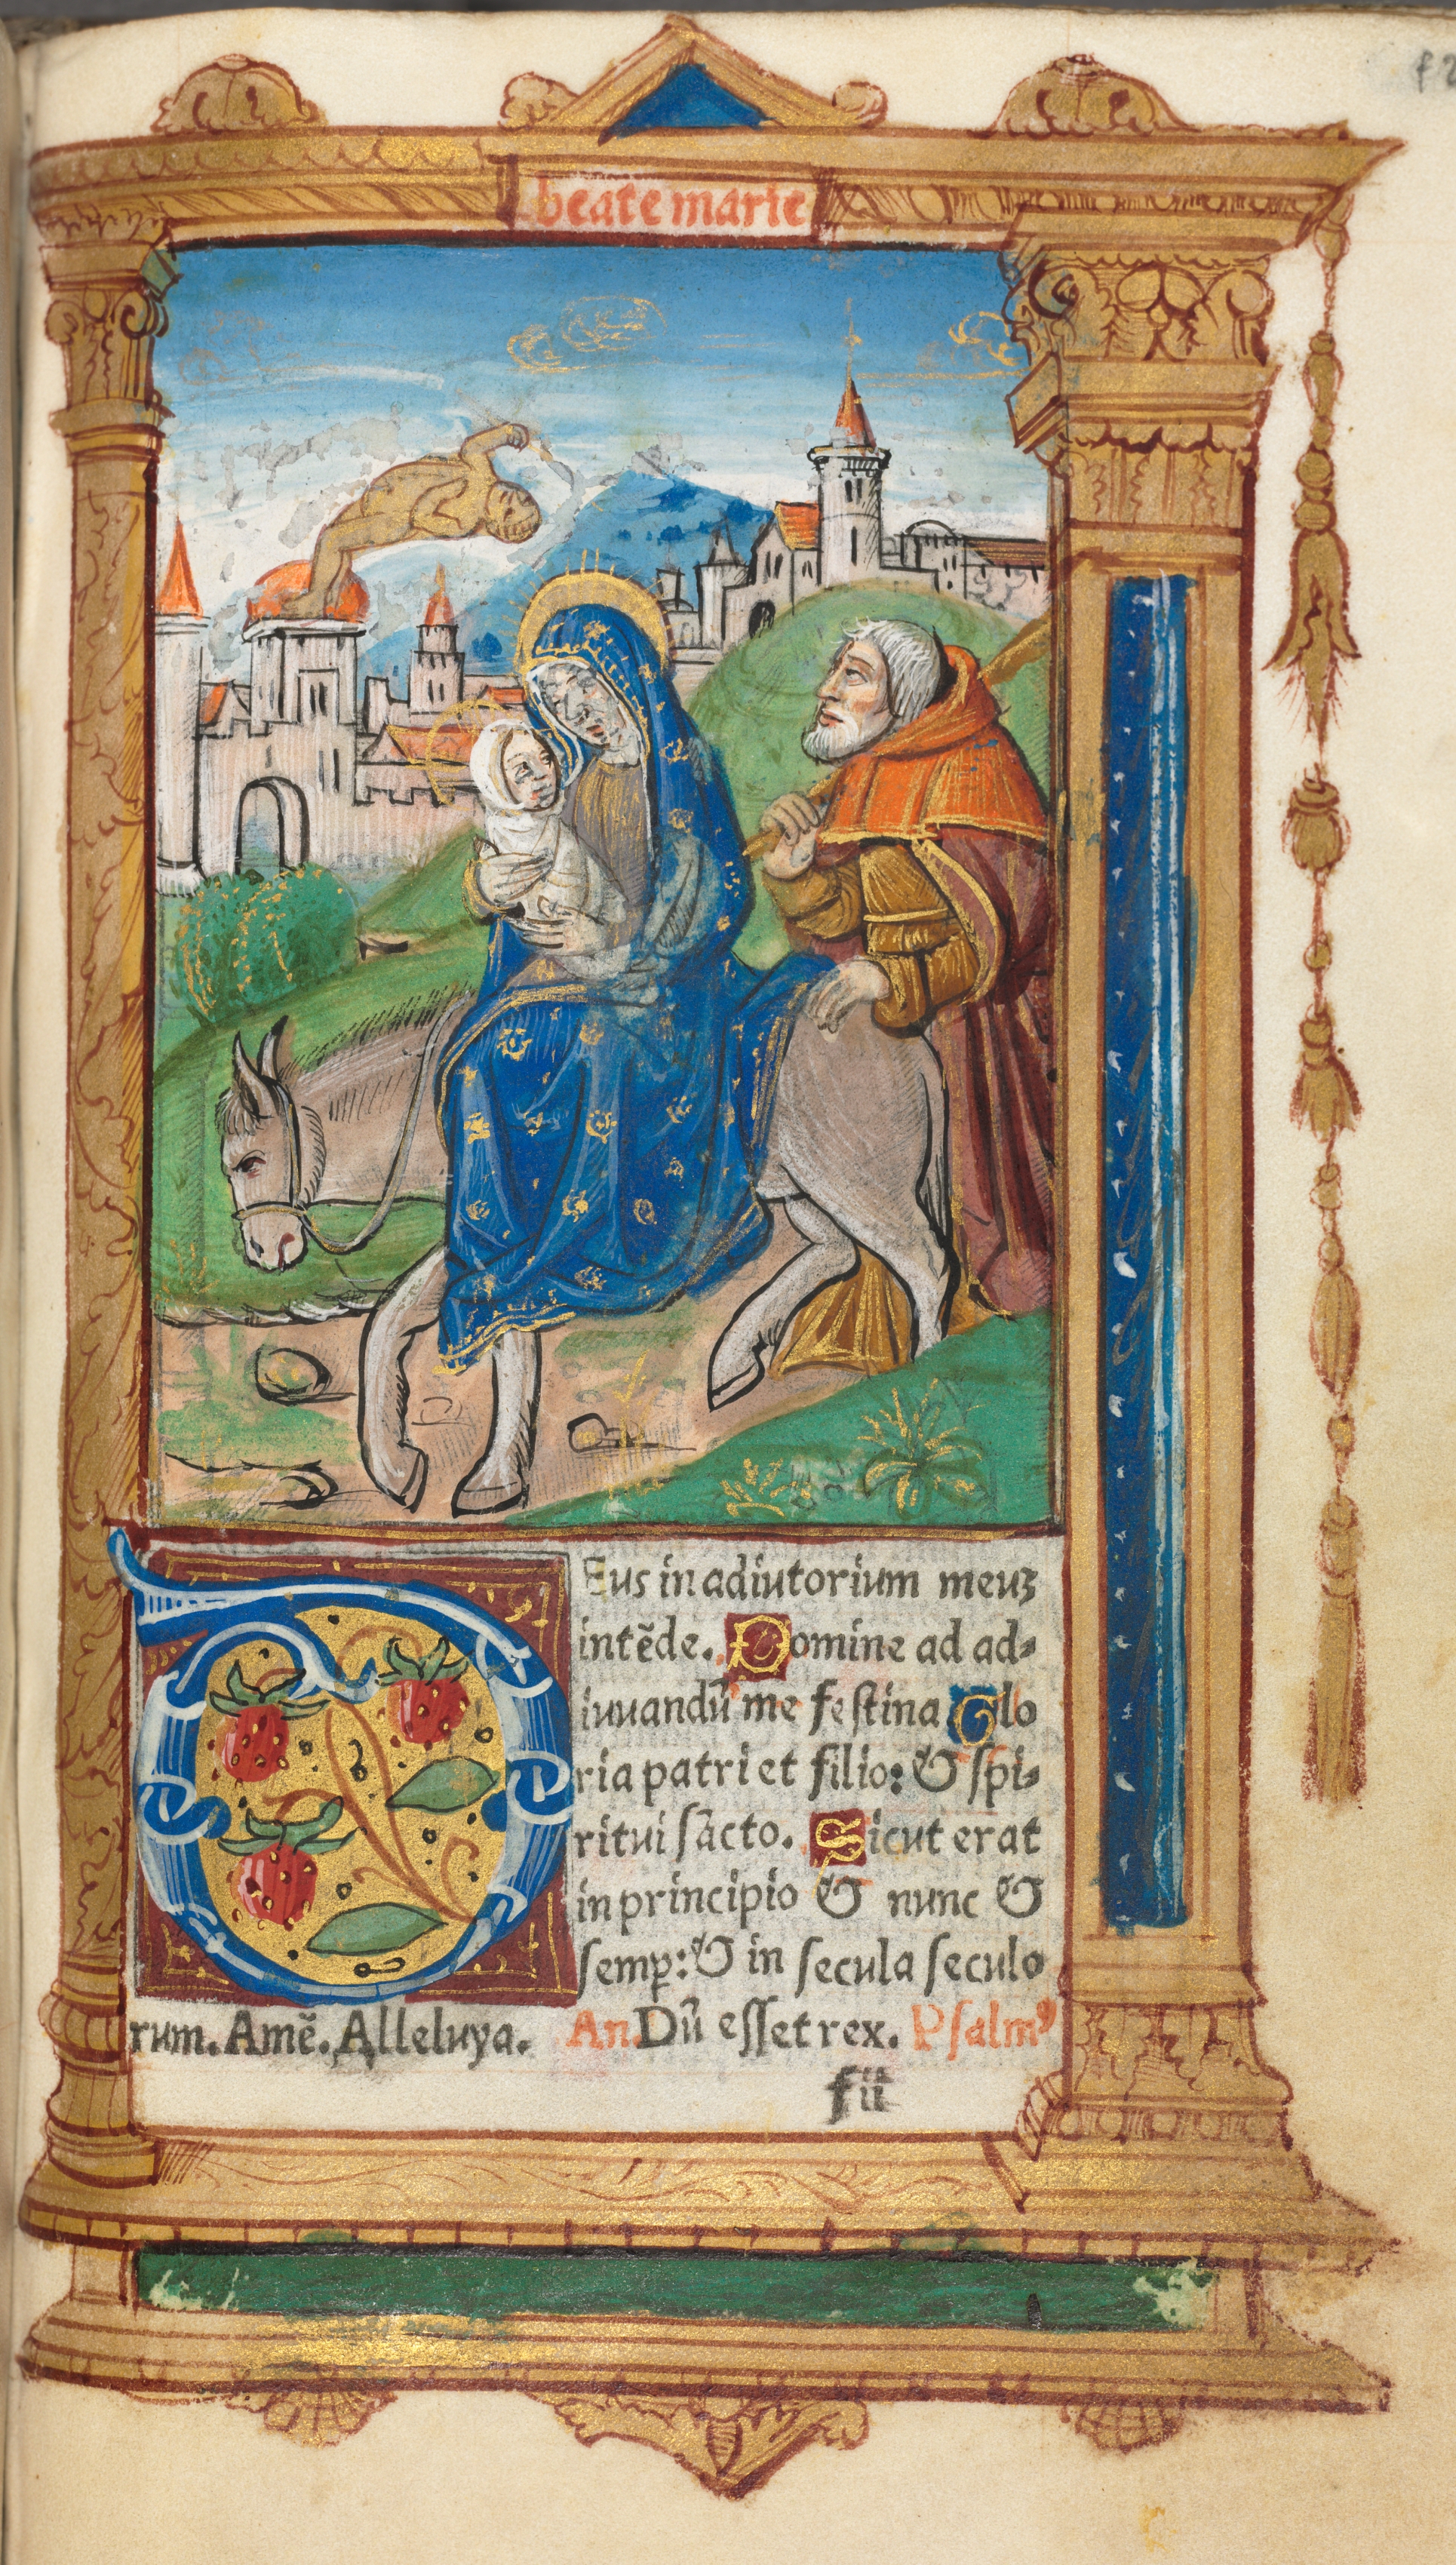 f 2
beate marie
Eus in adiutorium meuꝫ
intēde. Domine ad ad⸗
iuuandū me festina Glo
ria patri et filio: & spi⸗
ritui sācto. Sicut erat
in principio & nunc &
semꝑ: & in secula seculo
rum. Amē. Alleluya. An. Dū esset rex. Psalmꝰ
f ii